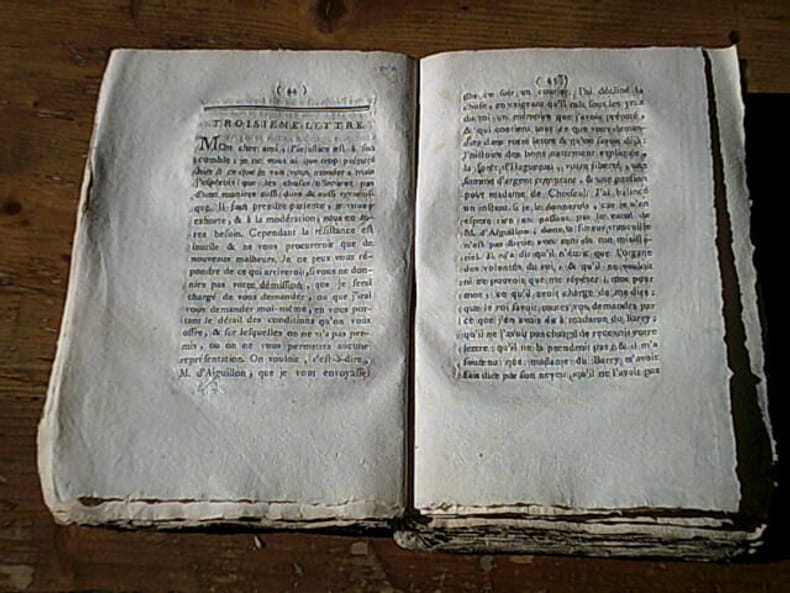 ( 44 )
TROISIEME LETTRE.
Mon cher ami, l'injustice est à son
comble; je ne vous ai que trop préparé
à ce que je vais vous mander, mais
j'espérois que les choses n'iroient pas
d'une maniere aussi dure & aussi
que. Il faut prendre patience, je vous y
exhorte, & à la modération; vous en au-
rez besoin. Cependant la résistance est
inutile & ne vous procureroit que de
nouveaux malheurs. Je ne peux vous ré-
pondre de ce qui arriveroit, si vous ne don-
niez pas votre démission, que je serai
chargé de vous demander, ou que j'irai
vous demander moi-même, en vous por-
tant le détail des conditions qu'on vous
offre, & sur lesquelles on ne m'a pas per-
mis, ou on ne vous permettra aucune
représentation. On vouloit, c'est-à-dire,
M. d'Aiguillon, que je vous envoyasse
( 45 )
dès ce soir un courier. J'ai décliné la
chose, en exigeant qu'il mît sous les yeux
du roi un mémoire que j'avois préparé,
& qui contient tout ce que vous deman-
diez dans votre lettre & qu'on savoit déjà:
l'histoire des bons nettement expliquée,
la forêt d'Haguenau, votre liberté, une
somme d'argent comptant, & une pension
pour madame de Choiseul. J'ai balancé
un instant si je le donnerois, car je n'en
espere rien en passant par le canal de
M. d'Aiguillon, dont la fureur
n'est pas
riel. Il m'a dit qu'il n'étoit que l'organe
des volontés du roi, & qu'il ne vouloit
ni ne pouvoit que me répéter, mot pour
mot, ce qu'il avoit charge de me dire;
que le roi savoit toutes vos demandes par
ce que j'en avois dit à madame du Barry;
qu'il ne l'avoit pas chargé de recevoir votre
lettre; qu'il ne la prendroit pas, & il m'a
soutenu que madame du Barry m'avoit
fait dire par son neveu, qu'il ne l'avoit pas